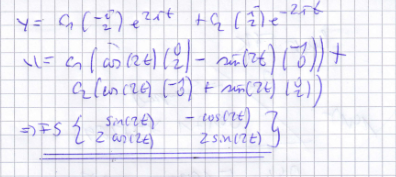 y = c₁ (-i 2) e^{2it} + c₂ (i 2) e^{-2it}
y = c₁ (cos(2t) (0 2) - sin(2t) (-1 0)) +
c₂ (cos(2t) (-1 0) + sin(2t) (0 2))
⇒ FS { sin(2t) -cos(2t)
2 cos(2t) 2 sin(2t) }